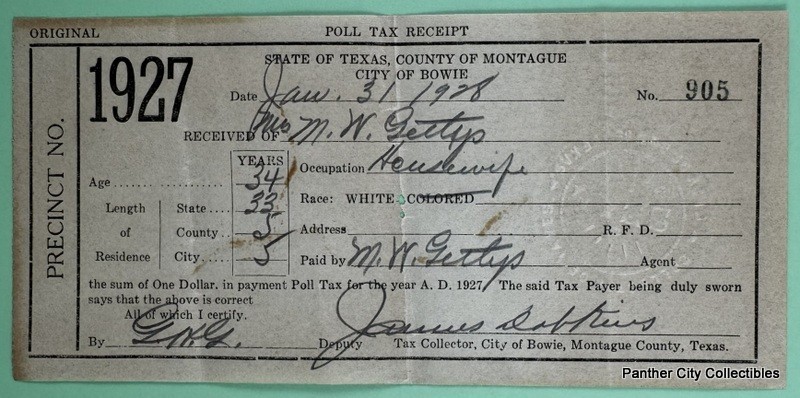 ORIGINAL POLL TAX RECEIPT
PRECINCT NO.
1927
STATE OF TEXAS, COUNTY OF MONTAGUE
CITY OF BOWIE
Date Jan. 31 1928 No. 905
RECEIVED OF Mrs M. W. Gettys
YEARS
Age 34 Occupation Housewife
Length of Residence
State 33 Race: WHITE COLORED
County 5 Address R. F. D.
City 5 Paid by M. W. Gettys Agent
the sum of One Dollar. in payment Poll Tax for the year A. D. 1927. The said Tax Payer being duly sworn
says that the above is correct
All of which I certify.
James Dobkins
By G.H.G. Deputy Tax Collector, City of Bowie, Montague County, Texas.
Panther City Collectibles